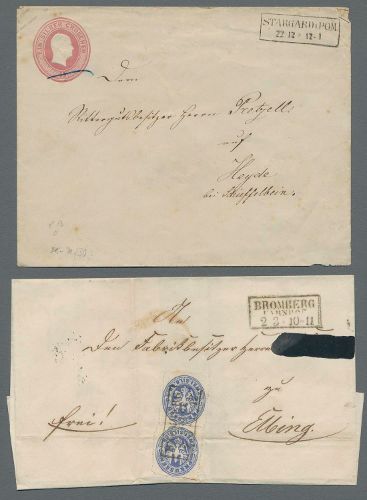 EIN SILBER GROSCHEN
STARGARD i POM.
22 12 * 12-1
Dem
Rittergutsbesitzer Herrn Pretzell
auf
Heyde
bei Schieffelbein.
An
BROMBERG
BAHNHOF
2 3 * 10-11
Den Fabrikbesitzer Herrn
zu
frei!
Elbing.